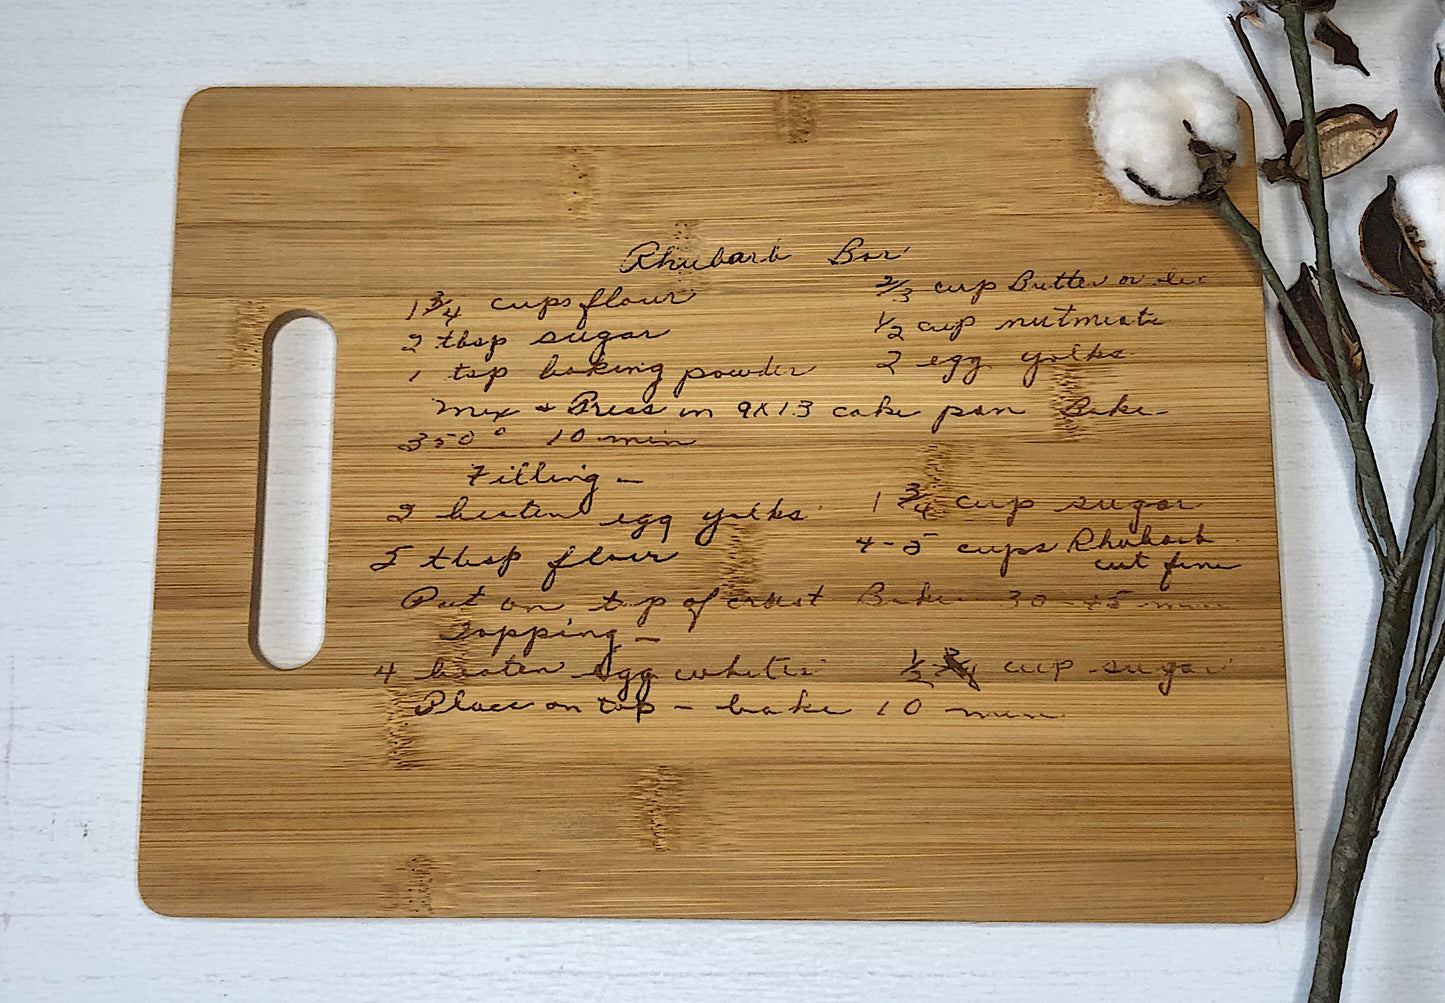 Rhubarb Bar
1 3/4 cups flour 2/3 cup Butter or
2 tbsp sugar 1/2 cup nutmeats
1 tsp baking powder 2 egg yolks
Mix + Press in 9X13 cake pan Bake
350° 10 min
Filling -
2 beaten egg yolks 1 3/4 cup sugar
5 tbsp flour 4-5 cups Rhubarb
cut fine
Put on top of crust Bake 30-45 min
Topping -
4 beaten egg whites 1/2 cup sugar
Place on top - bake 10 min